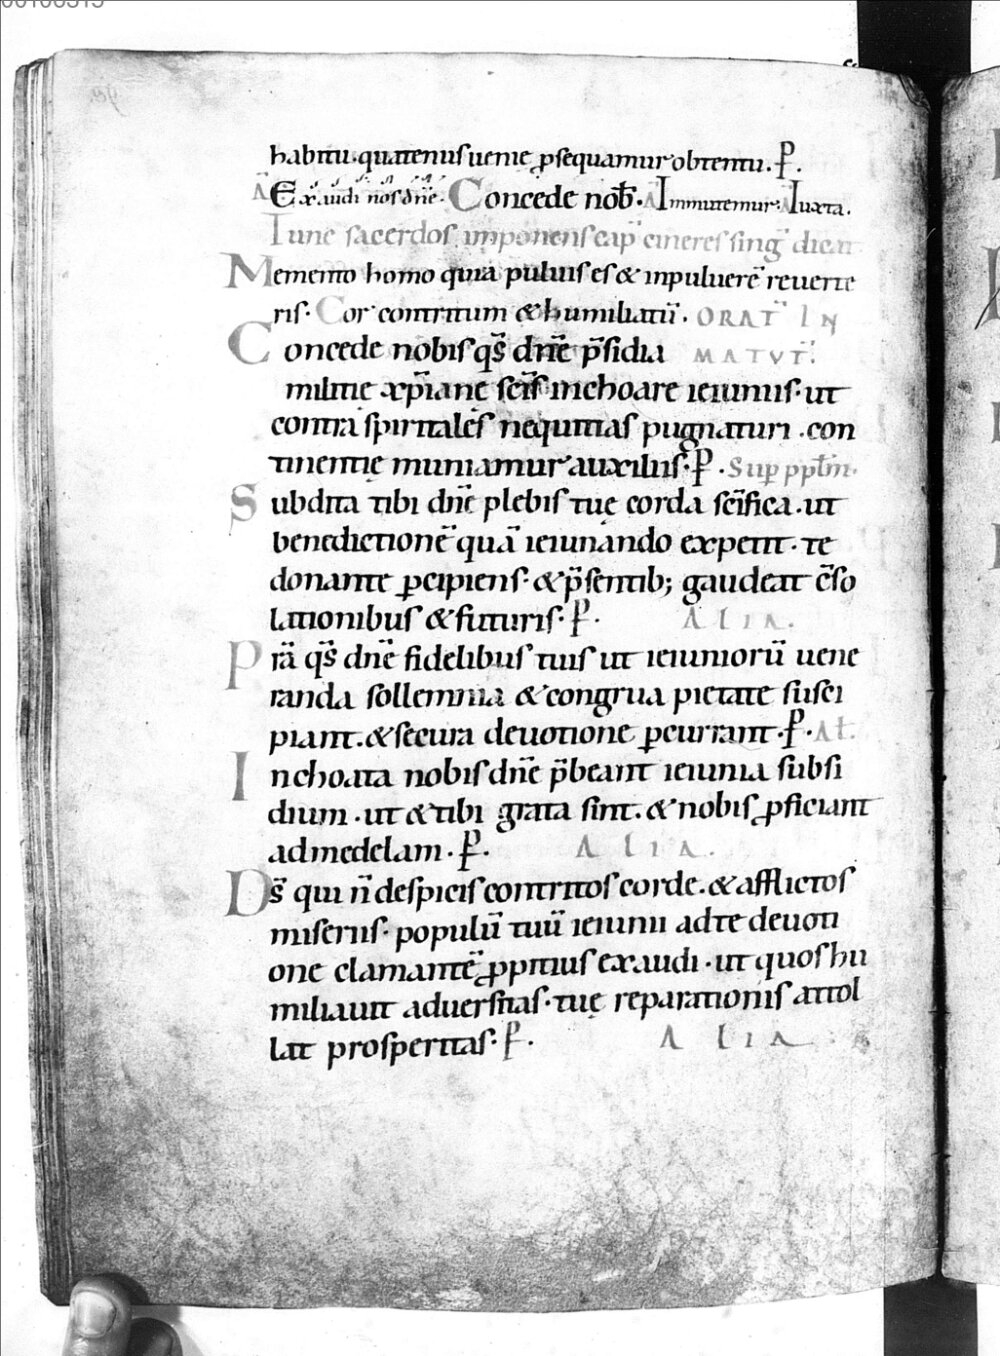 habitu. quatenus uenię ꝓsequamur obtentu. P̷.
A̅ Exaudi nos dn̅e. Concede nob̅. A̅ Immutemur. A̅ Iuxta.
Tunc sacerdos imponens cap̅ cineres sing̅ dicat
Memento homo quia puluis es & inpuluerē reuerte
ris. Cor contritum & humiliatū. ORAT̅ IN
Concede nobis qs̅ dn̅e p̅sidia MATVT̅.
militię xp̅ianę sc̅is inchoare ieiuniis. ut
contra spiritales nequitias pugnaturi. con
tinentię muniamur auxiliis. P̷. Sup̱ ppl̅m.
Subdita tibi dn̅e plebis tuę corda sc̅ifica. ut
benedictionē quā ieiunando expetit. te
donante p̱cipiens. & p̅sentib; gaudeat c̅so
lationibus & futuris. P̷. ALIA.
Pr̅a qs̅ dn̅e fidelibus tuis ut ieiuniorū uene
randa sollemnia & congrua pietate susci
piant. & secura deuotione p̱currant. P̷. AL.
Inchoata nobis dn̅e p̅beant ieiunia subsi
dium. ut & tibi grata sint. & nobis ꝓficiant
admedelam. P̷. ALIA.
Ds̅ qui n̅ despicis contritos corde. & afflictos
miseriis. populū tuū ieiunii adte deuoti
one clamantē ꝓpitius exaudi. ut quos hu
miliauit aduersitas. tuę reparationis attol
lat prosperitas. P̷. ALIA.